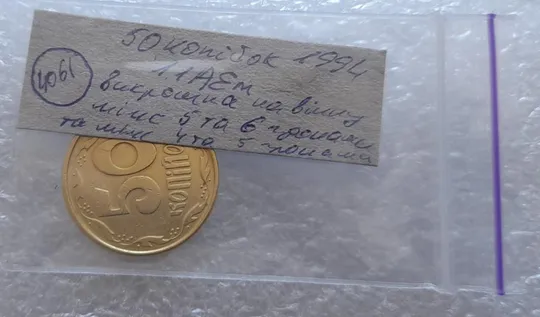 50 копійок 1994
1 1АЕм
4061
викрошка на вінку
між 5 та 6 гронами
та між 4 та 5 грона
50
КОПІЙО